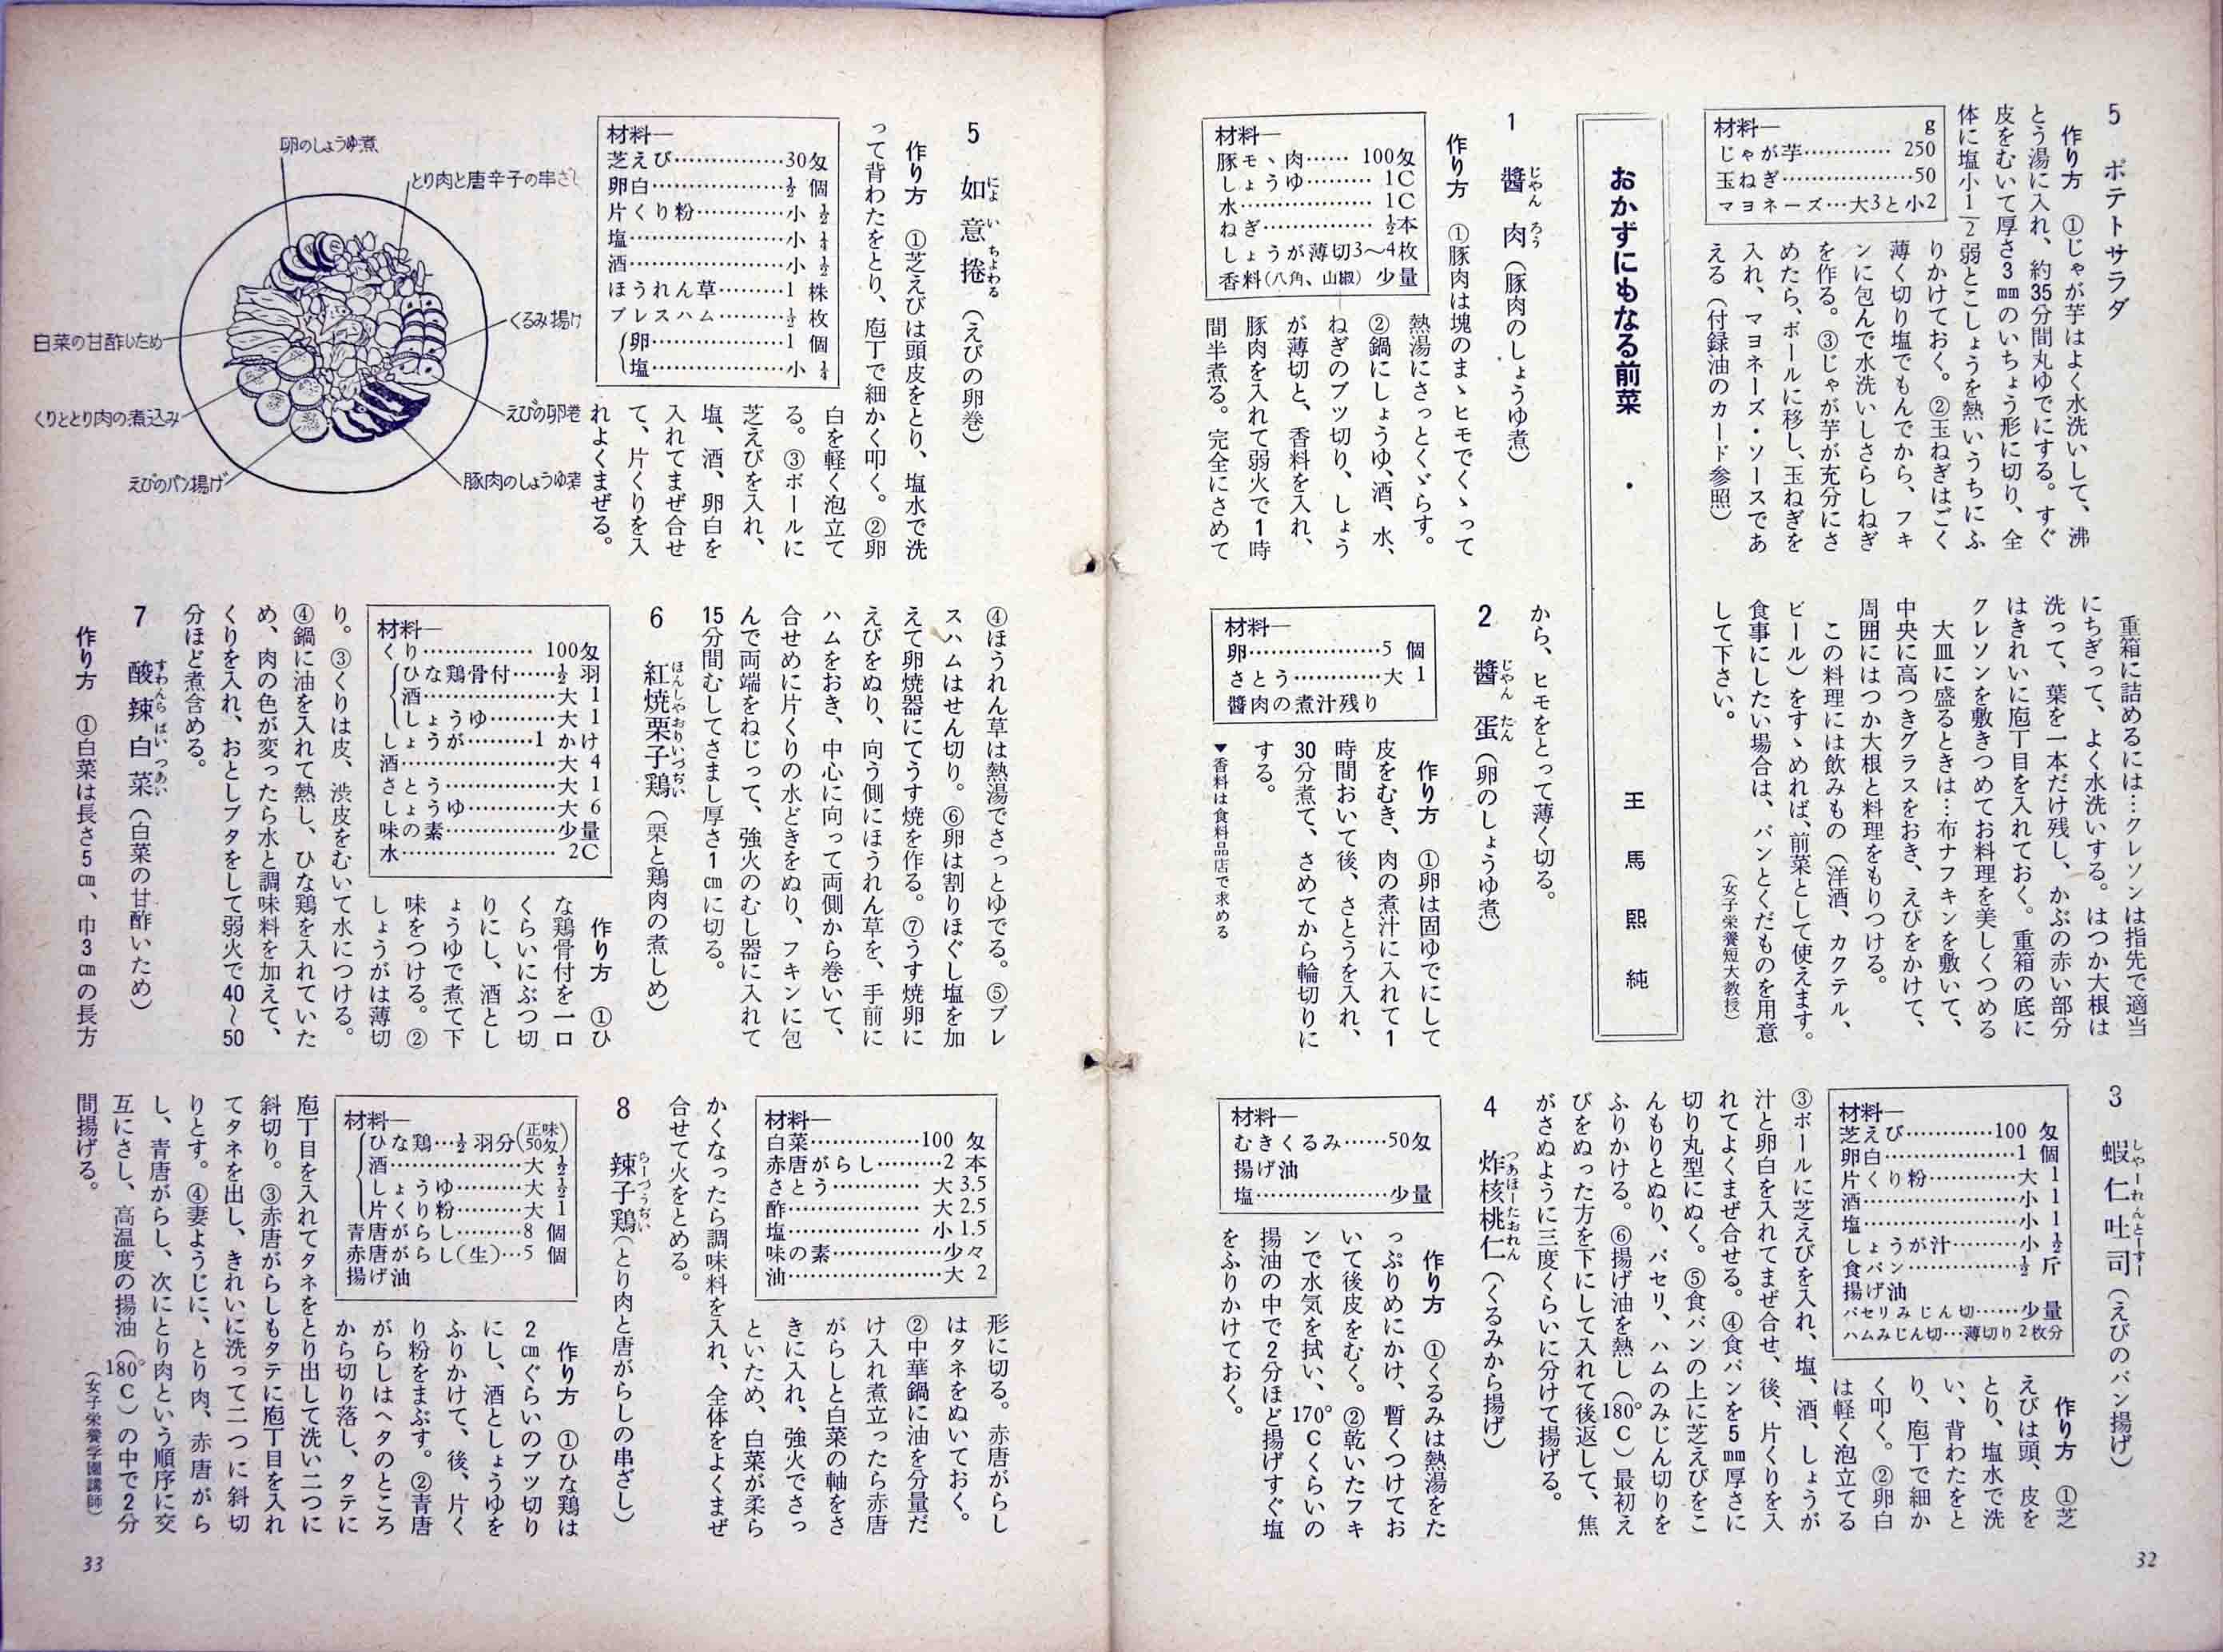 5 ポテトサラダ
材料―　g
じゃが芋…………250
玉ねぎ………………50
マヨネーズ…大3と小2
作り方 ①じゃが芋はよく水洗いして、沸
とう湯に入れ、約35分間丸ゆでにする。すぐ
皮をむいて厚さ3㎜のいちょう形に切り、全
体に塩小1/2弱とこしょうを熱いうちにふ
りかけておく。②玉ねぎはごく
薄く切り塩でもんでから、フキ
ンに包んで水洗いしさらしねぎ
を作る。③じゃが芋が充分にさ
めたら、ボールに移し、玉ねぎを
入れ、マヨネーズ・ソースであ
える（付録油のカード参照）
重箱に詰めるには…クレソンは指先で適当
にちぎって、よく水洗いする。はつか大根は
洗って、葉を一本だけ残し、かぶの赤い部分
はきれいに庖丁目を入れておく。重箱の底に
クレソンを敷きつめてお料理を美しくつめる
大皿に盛るときは…布ナフキンを敷いて、
中央に高つきグラスをおき、えびをかけて、
周囲にはつか大根と料理をもりつける。
この料理には飲みもの（洋酒、カクテル、
ビール）をすゝめれば、前菜として使えます。
食事にしたい場合は、パンとくだものを用意
して下さい。
（女子栄養短大教授）
おかずにもなる前菜 ・ 王馬熙純
1 醬肉（豚肉のしょうゆ煮）
じゃん ろう
材料―
豚モヽ肉……100匁
しょうゆ………1C
水………………1C
ねぎ……………½本
しょうが薄切3〜4枚
香料(八角、山椒) 少量
作り方 ①豚肉は塊のまゝヒモでくゝって
熱湯にさっとくゞらす。
②鍋にしょうゆ、酒、水、
ねぎのブツ切り、しょう
が薄切と、香料を入れ、
豚肉を入れて弱火で1時
間半煮る。完全にさめて
から、ヒモをとって薄く切る。
2 醬蛋（卵のしょうゆ煮）
じゃん たん
材料―
卵………………5 個
さとう…………大 1
醬肉の煮汁残り
作り方 ①卵は固ゆでにして
皮をむき、肉の煮汁に入れて1
時間おいて後、さとうを入れ、
30分煮て、さめてから輪切りに
する。
▼香料は食料品店で求める
3 蝦仁吐司（えびのパン揚げ）
しゃーれんとーすー
材料―
芝えび…………100 匁
卵白………………1 個
片くり粉…………大 1
酒…………………小 1
塩…………………小 1
しょうが汁………小 ½
食パン……………½ 斤
揚げ油
パセリみじん切……少量
ハムみじん切…薄切り2枚分
作り方 ①芝
えびは頭、皮を
とり、塩水で洗
い、背わたをと
り、庖丁で細か
く叩く。②卵白
は軽く泡立てる
③ボールに芝えびを入れ、塩、酒、しょうが
汁と卵白を入れてまぜ合せ、後、片くりを入
れてよくまぜ合せる。④食パンを5㎜厚さに
切り丸型にぬく。⑤食パンの上に芝えびをこ
んもりとぬり、パセリ、ハムのみじん切りを
ふりかける。⑥揚げ油を熱し（180°C）最初え
びをぬった方を下にして入れて後返して、焦
がさぬように三度くらいに分けて揚げる。
4 炸核桃仁（くるみから揚げ）
つぁほーたおれん
材料―
むきくるみ……50匁
揚げ油
塩………………少量
作り方 ①くるみは熱湯をた
っぷりめにかけ、暫くつけてお
いて後皮をむく。②乾いたフキ
ンで水気を拭い、170°Cくらいの
揚油の中で2分ほど揚げすぐ塩
をふりかけておく。
32
5 如意捲（えびの卵巻）
にょ い ちょわる
材料―
芝えび……………30匁
卵白………………½ 個
片くり粉…………小 ½
塩…………………小 ¼
酒…………………小 ½
ほうれん草………1 株
プレスハム………½ 枚
卵…………………1 個
塩…………………小 ¼
作り方 ①芝えびは頭皮をとり、塩水で洗
って背わたをとり、庖丁で細かく叩く。②卵
白を軽く泡立て
る。③ボールに
芝えびを入れ、
塩、酒、卵白を
入れてまぜ合せ
て、片くりを入
れよくまぜる。
卵のしょうゆ煮
とり肉と唐辛子の串ざし
くるみ揚げ
えびの卵巻
豚肉のしょうゆ煮
えびのパン揚げ
くりととり肉の煮込み
白菜の甘酢いため
④ほうれん草は熱湯でさっとゆでる。⑤プレ
スハムはせん切り。⑥卵は割りほぐし塩を加
えて卵焼器にてうす焼を作る。⑦うす焼卵に
えびをぬり、向う側にほうれん草を、手前に
ハムをおき、中心に向って両側から巻いて、
合せめに片くりの水どきをぬり、フキンに包
んで両端をねじって、強火のむし器に入れて
15分間むしてさまし厚さ1㎝に切る。
6 紅焼栗子鶏（栗と鶏肉の煮しめ）
ほんしゃおりいづぢい
材料―
くり……………100匁
ひな鶏骨付……½ 羽
酒………………大 1
しょうゆ………大 1
しょうが………1 かけ
酒………………大 4
さとう…………大 1
しょうゆ………大 6
味の素…………少量
水………………2C
作り方 ①ひ
な鶏骨付を一口
くらいにぶつ切
りにし、酒とし
ょうゆで煮て下
味をつける。②
しょうがは薄切
り。③くりは皮、渋皮をむいて水につける。
④鍋に油を入れて熱し、ひな鶏を入れていた
め、肉の色が変ったら水と調味料を加えて、
くりを入れ、おとしブタをして弱火で40〜50
分ほど煮含める。
7 酸辣白菜（白菜の甘酢いため）
すわんら ばい つあい
作り方 ①白菜は長さ5㎝、巾3㎝の長方
材料―
白菜……………100 匁
赤唐がらし………2 本
さとう…………大 3.5
酢………………大 2.5
塩………………小 1.5
味の素……………少々
油………………大 2
形に切る。赤唐がらし
はタネをぬいておく。
②中華鍋に油を分量だ
け入れ煮立ったら赤唐
がらしと白菜の軸をさ
きに入れ、強火でさっ
といため、白菜が柔ら
かくなったら調味料を入れ、全体をよくまぜ
合せて火をとめる。
8 辣子鶏（とり肉と唐がらしの串ざし）
らーづうぢい
材料―
ひな鶏…½ 羽分(正味50匁)
酒………………大 ½
しょうゆ………大 ½
片くり粉………大 1
青唐がらし………8 個
赤唐がらし(生)…5 個
揚げ油
作り方 ①ひな鶏は
2㎝ぐらいのブツ切り
にし、酒としょうゆを
ふりかけて、後、片く
り粉をまぶす。②青唐
がらしはヘタのところ
から切り落し、タテに
庖丁目を入れてタネをとり出して洗い二つに
斜切り。③赤唐がらしもタテに庖丁目を入れ
てタネを出し、きれいに洗って二つに斜切
りとす。④妻ようじに、とり肉、赤唐がら
し、青唐がらし、次にとり肉という順序に交
互にさし、高温度の揚油（180°C）の中で2分
間揚げる。
（女子栄養学園講師）
33